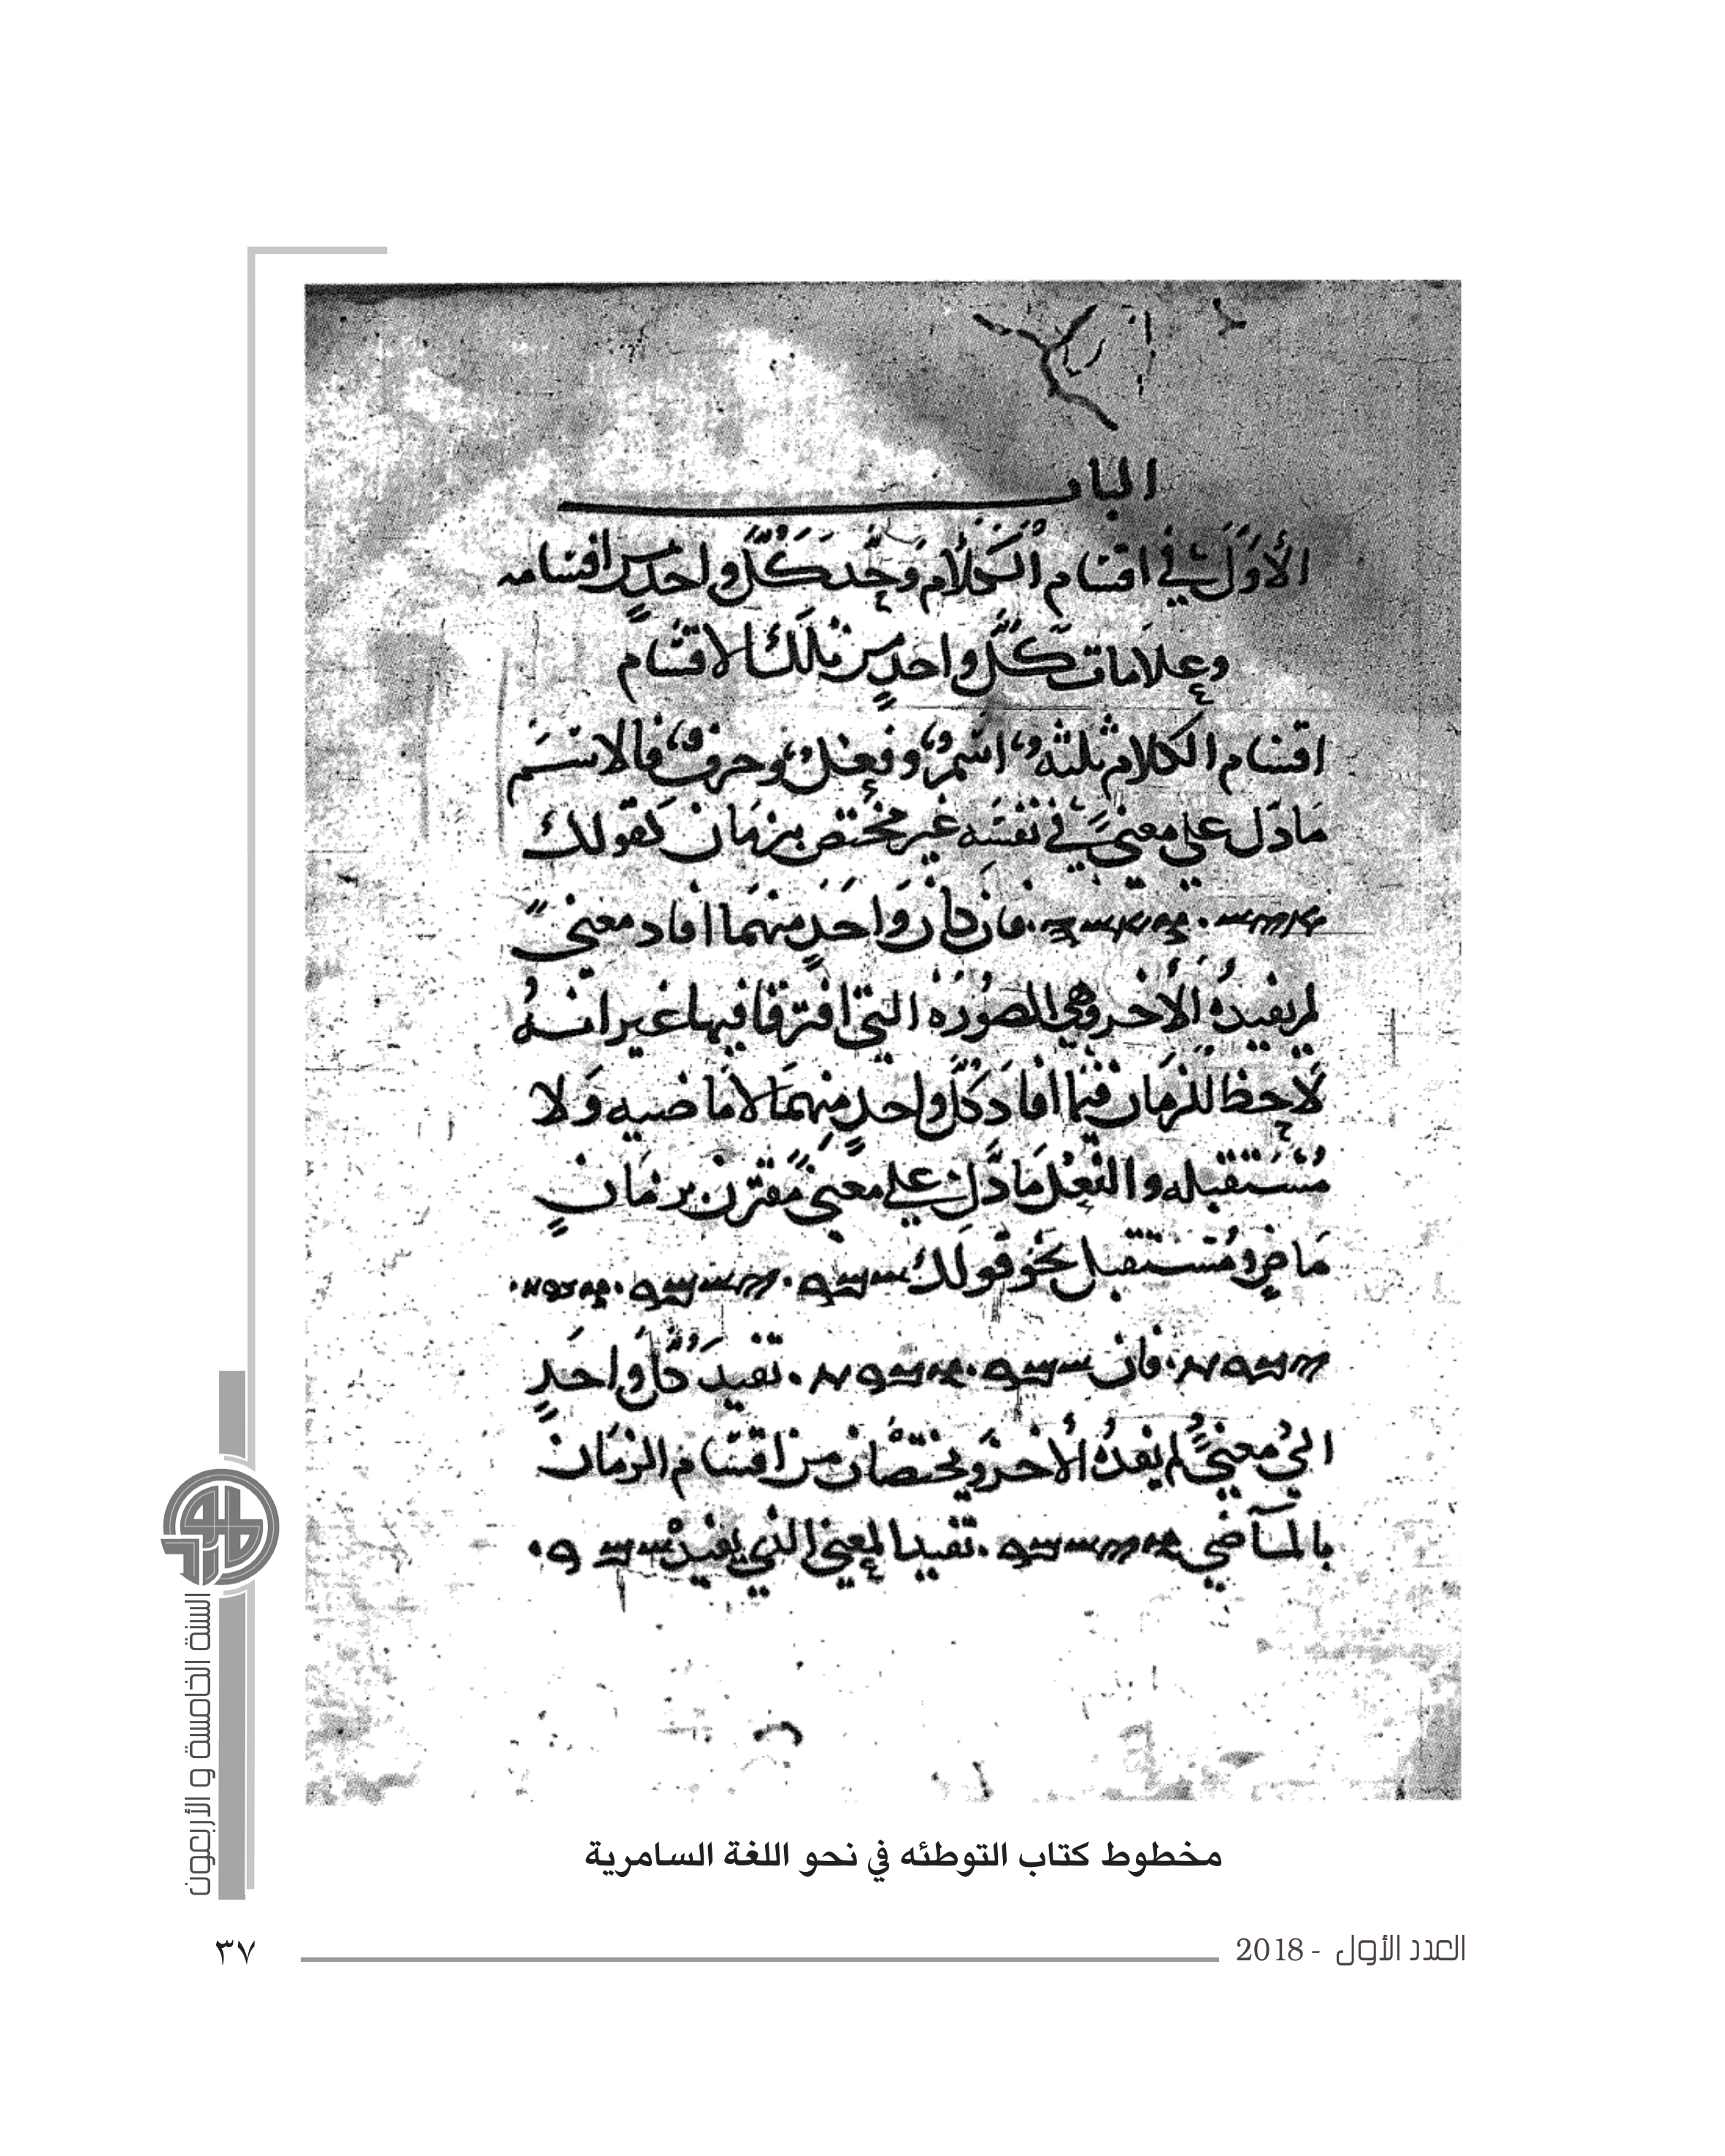 الباب
الأوّل في اقسام الكَلام وَحَّد كُلّ واحدٍ من اقسامه
وعلامات كلّ واحدٍ من تلك الاقسام
اقسام الكلام ثلثه اسْمٌ وفعلٌ وحرفٌ فالاسم
مَا دَل علي معنيً في نفسه غير مختص بزمان كقولك
فان كل واحدٍ منهما افاد معنيً
لم يفيدهُ الأخر وهي الصوره التي افترقا فيها غير انه
لاحظ للزمان فيما افاد كل واحدٍ منهما لا ماضيه وَلا
مُستقبله والفعْل مَا دَل علي معنيً مقترن بزمانٍ
مَاضٍ ومُستقبل نحو قولك
فان تفيدَ كل واحدٍ
الي معنيً لم يفدهُ الأخر ويختصان من اقسَام الزمان
بالمآضي تفيد المعني الذي يفيد
مخطوط كتاب التوطئه في نحو اللغة السامرية
السنة الخامسة و الأربعون
العدد الأول - 2018
٣٧